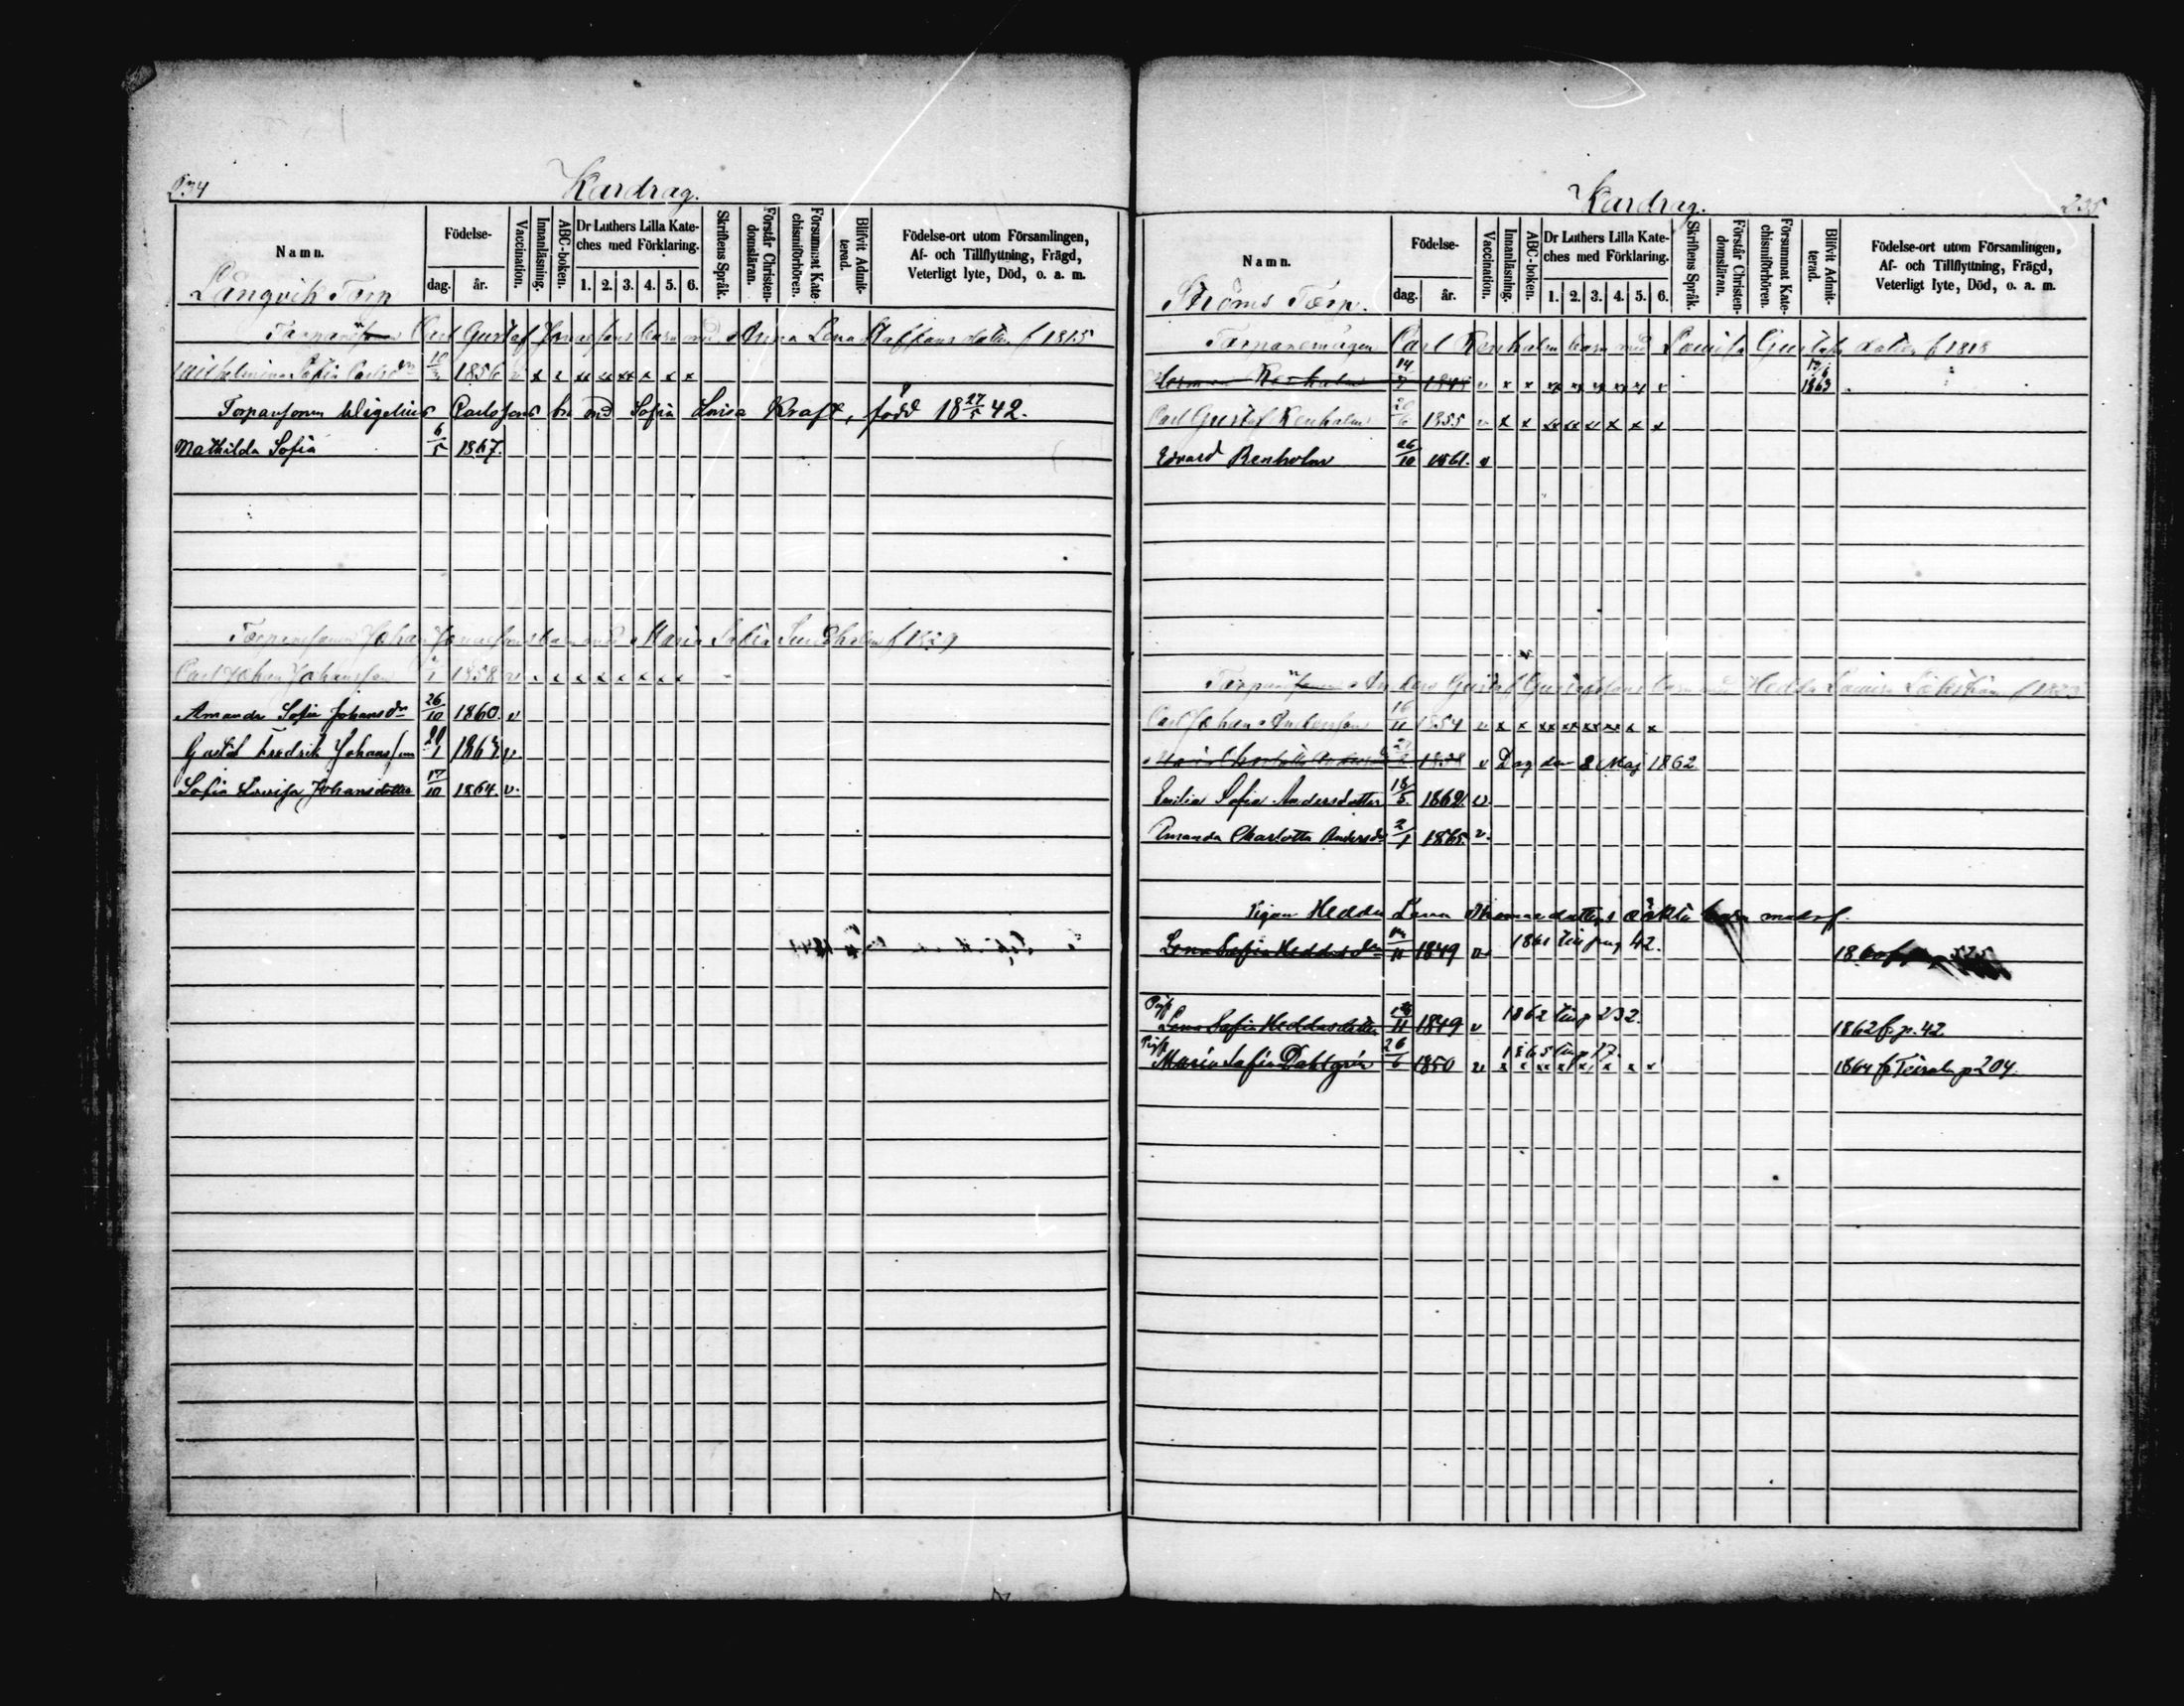 234
Kardrag.
Namn.
Födelse-
dag.
år.
Vaccination.
Innanläsning.
ABC-boken.
Dr Luthers Lilla Kate-
ches med Förklaring.
1. 2. 3. 4. 5. 6.
Skriftens Språk.
Förstår Christen-
domsläran.
Försummat Kate-
chismiförhören.
Blifvit Admit-
terad.
Födelse-ort utom Församlingen,
Af- och Tillflyttning, Frägd,
Veterligt lyte, Död, o. a. m.
Långvik Torp
Carl Gustaf Jonassons barn med Anna Lena Staffansdotter f 1815
Wilhelmina Sofia Carlsdr 1856 v x x xx xx xx x x x
Torparsonen Wigelius Carlssons bn md Sofia Lovisa Kraft, född 18 27/5 42.
Mathilda Sofia 6/5 1867.
Torparsonen Johan Jonassons barn med Maria Sofia Sundholm f 1829
Carl Johan Johansson 1858 v x x x x x x x x
Amanda Sofia Johansdr 26/10 1860. v
Gustaf Fredrik Johansson 20/1 1867 v.
Sofia Lovisa Johansdotter 17/10 1864. v.
Kardrag.
235
Namn.
Födelse-
dag.
år.
Vaccination.
Innanläsning.
ABC-boken.
Dr Luthers Lilla Kate-
ches med Förklaring.
1. 2. 3. 4. 5. 6.
Skriftens Språk.
Förstår Christen-
domsläran.
Försummat Kate-
chismiförhören.
Blifvit Admit-
terad.
Födelse-ort utom Församlingen,
Af- och Tillflyttning, Frägd,
Veterligt lyte, Död, o. a. m.
Ströms Torp.
Torparemågen Carl Renholm barn med Lovisa Gustafs dotter f 1818
Herman Renholm 14 v x x xx xx xx xx xx v 1863
Carl Gustaf Renholm 20/6 1855 v x x xx xx xx x x x
Edvard Renholm 26/10 1861. v
Anders Gustaf Gustafssons barn med Hedda Lovisa
Carl Johan Andersson 16/11 1854 v x x xx xx xx xx x x
Maria Charlotta 1858 v Dog den 8 Maj 1862
Emilia Sofia Andersdotter 18/5. 1862. v.
Amanda Charlotta Andersdr 2/1 1865. v.
Pigan Hedda Lena Thomasdotters oäkta barn
Lena Sofia Heddasdr 11 1849 v. 1861 till pag 42.
Pig
Lena Sofia Heddasdotter 11 1849 v 1862 till p 232. 1862 fr. p. 42
Pig
Maria Sofia Dahlgrén 26/6 1850 v 1865 till p 17. x x xx x x x x x 1864 fr Teisala p 204.